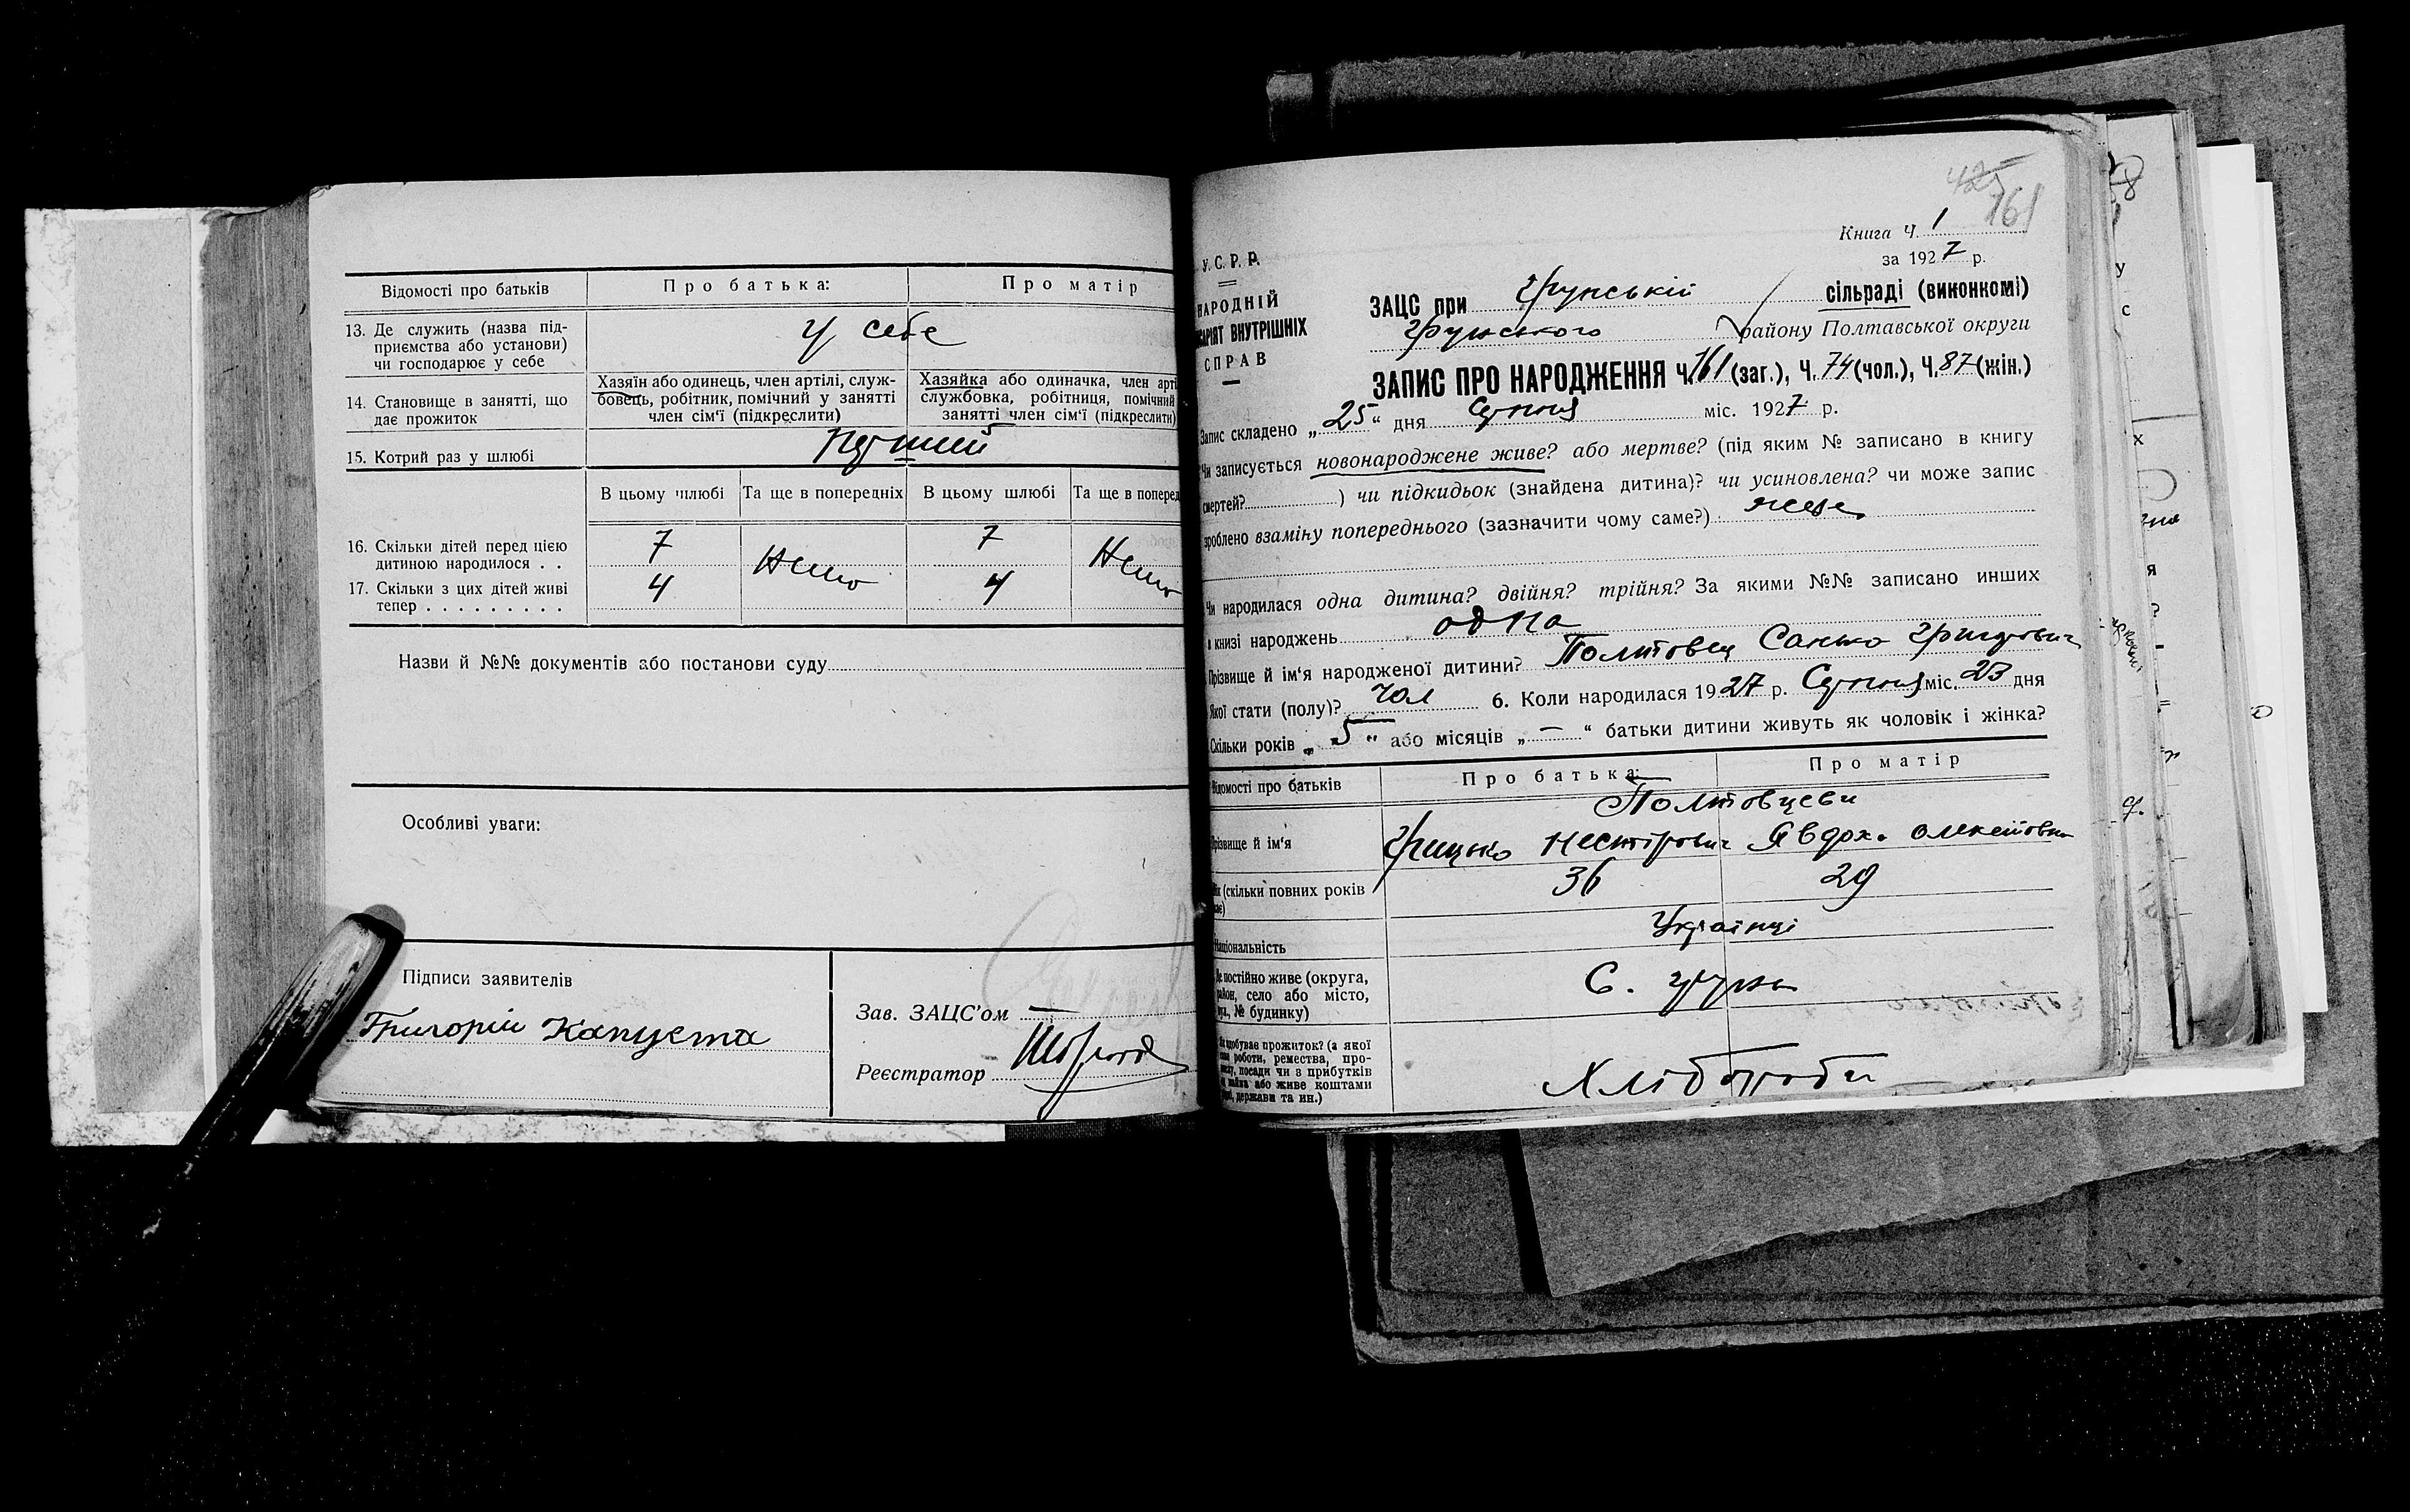 Відомості про батьків
Про батька:
Про матір
13. Де служить (назва під-
приємства або установи)
чи господарює у себе
у себе
14. Становище в занятті, що
дає прожиток
Хазяїн або одинець, член артілі, служ-
бовець, робітник, помічний у занятті
член сім'ї (підкреслити)
Хазяйка або одиначка, член арті
службовка, робітниця, помічний
занятті член сім'ї (підкреслити)
15. Котрий раз у шлюбі
Перший
В цьому шлюбі
Та ще в попередніх
В цьому шлюбі
Та ще в поперед
16. Скільки дітей перед цією
дитиною народилося . .
7
Нема
7
Нема
17. Скільки з цих дітей живі
тепер . . . . . . . . . .
4
4
Назви й №№ документів або постанови суду
Особливі уваги:
Підписи заявителів
Григорій Капуста
Зав. ЗАЦС'ом
Реєстратор
425
161
Книга Ч. 1
за 1927 р.
У.С.Р.Р.
НАРОДНІЙ
АРІЯТ ВНУТРІШНІХ
СПРАВ
ЗАЦС при Грунській сільраді (виконкомі)
Грунського району Полтавської округи
ЗАПИС ПРО НАРОДЖЕННЯ Ч. 161 (заг.), Ч. 74 (чол.), Ч. 87 (жін.)
Запис складено „25“ дня Серпня міс. 1927 р.
Чи записується новонароджене живе? або мертве? (під яким № записано в книгу
смертей? ) чи підкидьок (знайдена дитина)? чи усиновлена? чи може запис
зроблено взаміну попереднього (зазначити чому саме?) живе
Чи народилася одна дитина? двійня? трійня? За якими №№ записано инших
в книзі народжень одна
Прізвище й ім'я народженої дитини? Полтовец Санько Григорович
Якої стати (полу)? Чол 6. Коли народилася 1927 р. Серпня міс. 23 дня
Скільки років „5“ або місяців „—“ батьки дитини живуть як чоловік і жінка?
Відомості про батьків
Про батька:
Про матір
Полтовцеви
Прізвище й ім'я
Грицько Несторович
Явдоха Олексіївна
Вік (скільки повних років
має)
36
29
Національність
Українці
Де постійно живе (округа,
район, село або місто,
вул., № будинку)
С. Грунь
Як здобуває прожиток? (з якої
роботи, ремества, про-
мислу, посади чи з прибутків
майна або живе коштами
держави та ин.)
Хлібороби